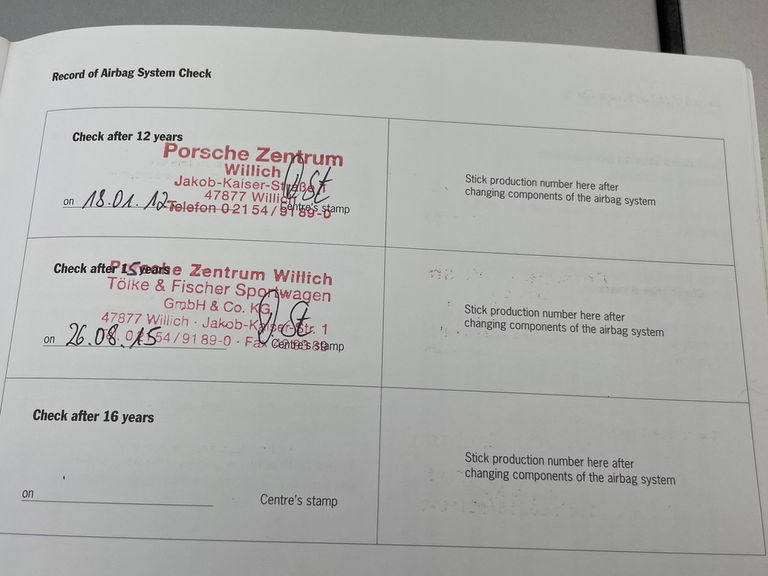 Record of Airbag System Check
Check after 12 years
Porsche Zentrum
Willich
Jakob-Kaiser-Straße 1
47877 Willich
Telefon 0 21 54 / 91 89-0
on 18.01.12
Centre's stamp
Stick production number here after
changing components of the airbag system
Check after 15 years
Porsche Zentrum Willich
Tölke & Fischer Sportwagen
GmbH & Co. KG
47877 Willich · Jakob-Kaiser-Str. 1
54 / 91 89-0 · Fax
on 26.08.15
Centre's stamp
Stick production number here after
changing components of the airbag system
Check after 16 years
on
Centre's stamp
Stick production number here after
changing components of the airbag system